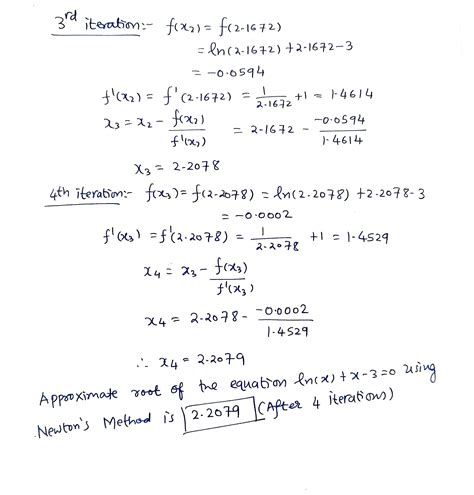 3rd iteration:- f(x₂) = f(2.1672)
= ln(2.1672) + 2.1672-3
= -0.0594
f'(x₂) = f'(2.1672) = 1/2.1672 + 1 = 1.4614
x₃ = x₂ - f(x₂)/f'(x₂) = 2.1672 - -0.0594/1.4614
x₃ = 2.2078
4th iteration:- f(x₃) = f(2.2078) = ln(2.2078) + 2.2078-3
= -0.0002
f'(x₃) = f'(2.2078) = 1/2.2078 + 1 = 1.4529
x₄ = x₃ - f(x₃)/f'(x₃)
x₄ = 2.2078 - -0.0002/1.4529
∴ x₄ = 2.2079
Approximate root of the equation ln(x) + x-3=0 using
Newton's Method is 2.2079 (After 4 iterations)